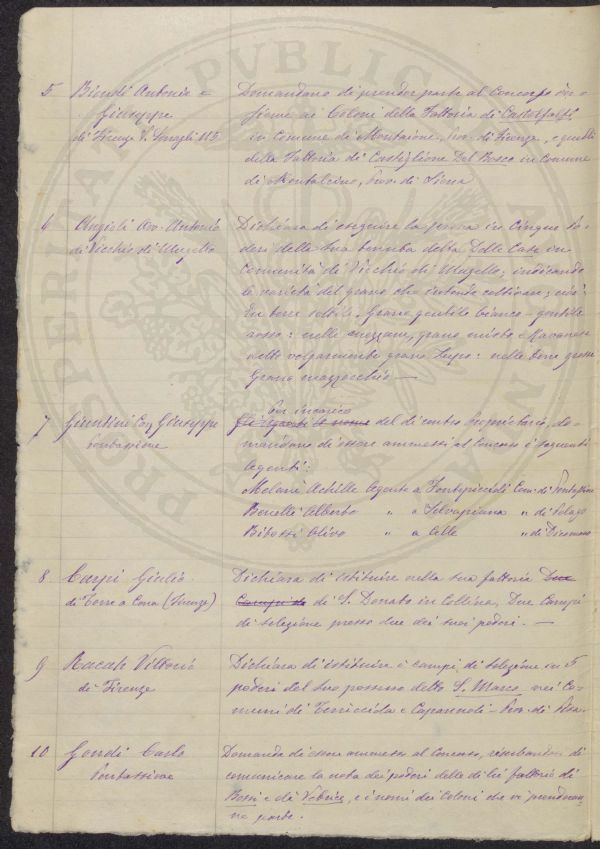 5 Biondi Antonio e Domandano di prender parte al Concorso in-
Giuseppe sieme ai Coloni della Fattoria di Castelfalfi
di Firenze V. Serragli 115 in Comune di Montaione, Prov. di Firenze, e quelli
della Fattoria di Castiglione Del Bosco in Comune
di Montalcino, Prov. di Siena
6 Angioli Avv. Antonio Dichiara di eseguire la prova in Cinque Po-
di Vicchio di Mugello deri della sua tenuta detta Delle Case in
Comunità di Vicchio di Mugello, indicando
le varietà del grano che intende coltivare; cioè:
In terre sottili, Grano gentile bianco - gentile
rosso: nelle mezzane, grano misto Ravanese
detto volgarmente grano Lupo: nelle terre grosse
Grano mazzocchio —
per incarico
7 Giuntini Cav. Giuseppe Gli Agenti del di contro Proprietario, do-
Pontassieve mandano di essere ammessi al Concorso i seguenti
Agenti:
Melani Achille Agente a Fontepiccioli Com. di Pontassieve
Benelli Alberto " a Selvapiana " di Pelago
Bibossi Olivo " a Celle " di Dicomano
8 Carpi Giulio Dichiara di istituire nella sua fattoria Due
di Torre a Cona (Firenze) Campi di di S. Donato in Collina, Due Campi
di selezione presso due dei suoi poderi. —
9 Racah Vittorio Dichiara di istituire i campi di selezione in 5
di Firenze poderi del suo possesso detto S. Marco nei Co-
muni di Terricciola e Capannoli - Prov. di Pisa.
10 Gondi Carlo Domanda di essere ammesso al Concorso, riserbandosi di
Pontassieve comunicare la nota dei poderi delle di lui fattorie di
Bossi e di Volmiano, e i nomi dei Coloni che vi prenderan-
no parte.
PROSPERITAS PVBLICA